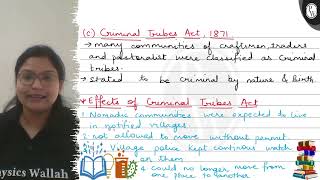 (c) Criminal Tribes Act, 1871.
→ many communities of craftsmen, traders
and pastoralist were classified as Criminal
tribes.
→ stated to be criminal by nature & birth.
* Effects of Criminal Tribes Act
1 Nomadic communities were expected to live
in notified villages.
2 not allowed to move without permit
Village police kept continous watch
on them
4 could no longer move from
one place to another.
Physics Wallah